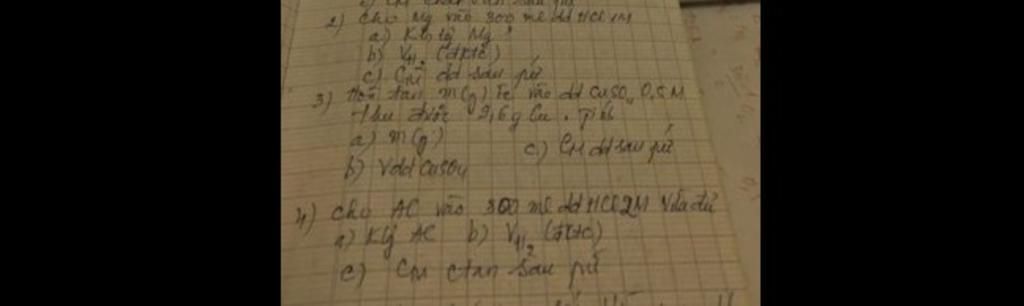 2) Cho Mg vào 300 ml dd HCl 1M
a) Klg Mg ?
b) VH2 (đktc)
c) CM dd sau pứ
3) Hoà tan m(g) Fe vào dd CuSO4 0,5M
thu được 9,6g Cu. Tính
a) m(g)
b) Vdd CuSO4
c) CM dd sau pứ
4) Cho Al vào 300 ml dd HCl 2M vừa đủ
a) Klg Al b) VH2 (đktc)
c) CM ctan sau pứ